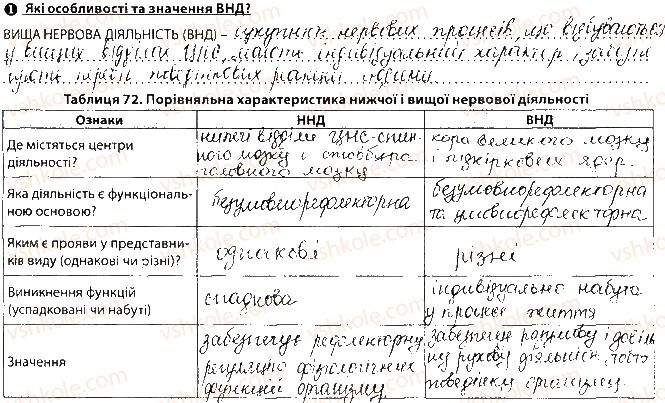 1 Які особливості та значення ВНД?
ВИЩА НЕРВОВА ДІЯЛЬНІСТЬ (ВНД) – сукупність нервових процесів, що відбуваються
у вищих відділах ЦНС, мають індивідуальний характер і
поведінкових реакцій людини
Таблиця 72. Порівняльна характеристика нижчої і вищої нервової діяльності
Ознаки ННД ВНД
Де містяться центри діяльності?
нижчі відділи ЦНС - спин-
ного мозку і стовбура
головного мозку
кора великого мозку
і підкіркових ядер
Яка діяльність є функціональ-
ною основою?
безумовнорефлекторна
безумовнорефлекторна
та умовнорефлекторна
Яким є прояви у представни-
ків виду (однакові чи різні)?
однакові
різні
Виникнення функцій
(успадковані чи набуті)
спадкова
індивідуально набута
у процесі життя
Значення
забезпечує рефлекторну
регуляцію фізіологічних
функцій організму
забезпечує розумову і довіль-
ну рухову діяльність, тобто
поведінку організму